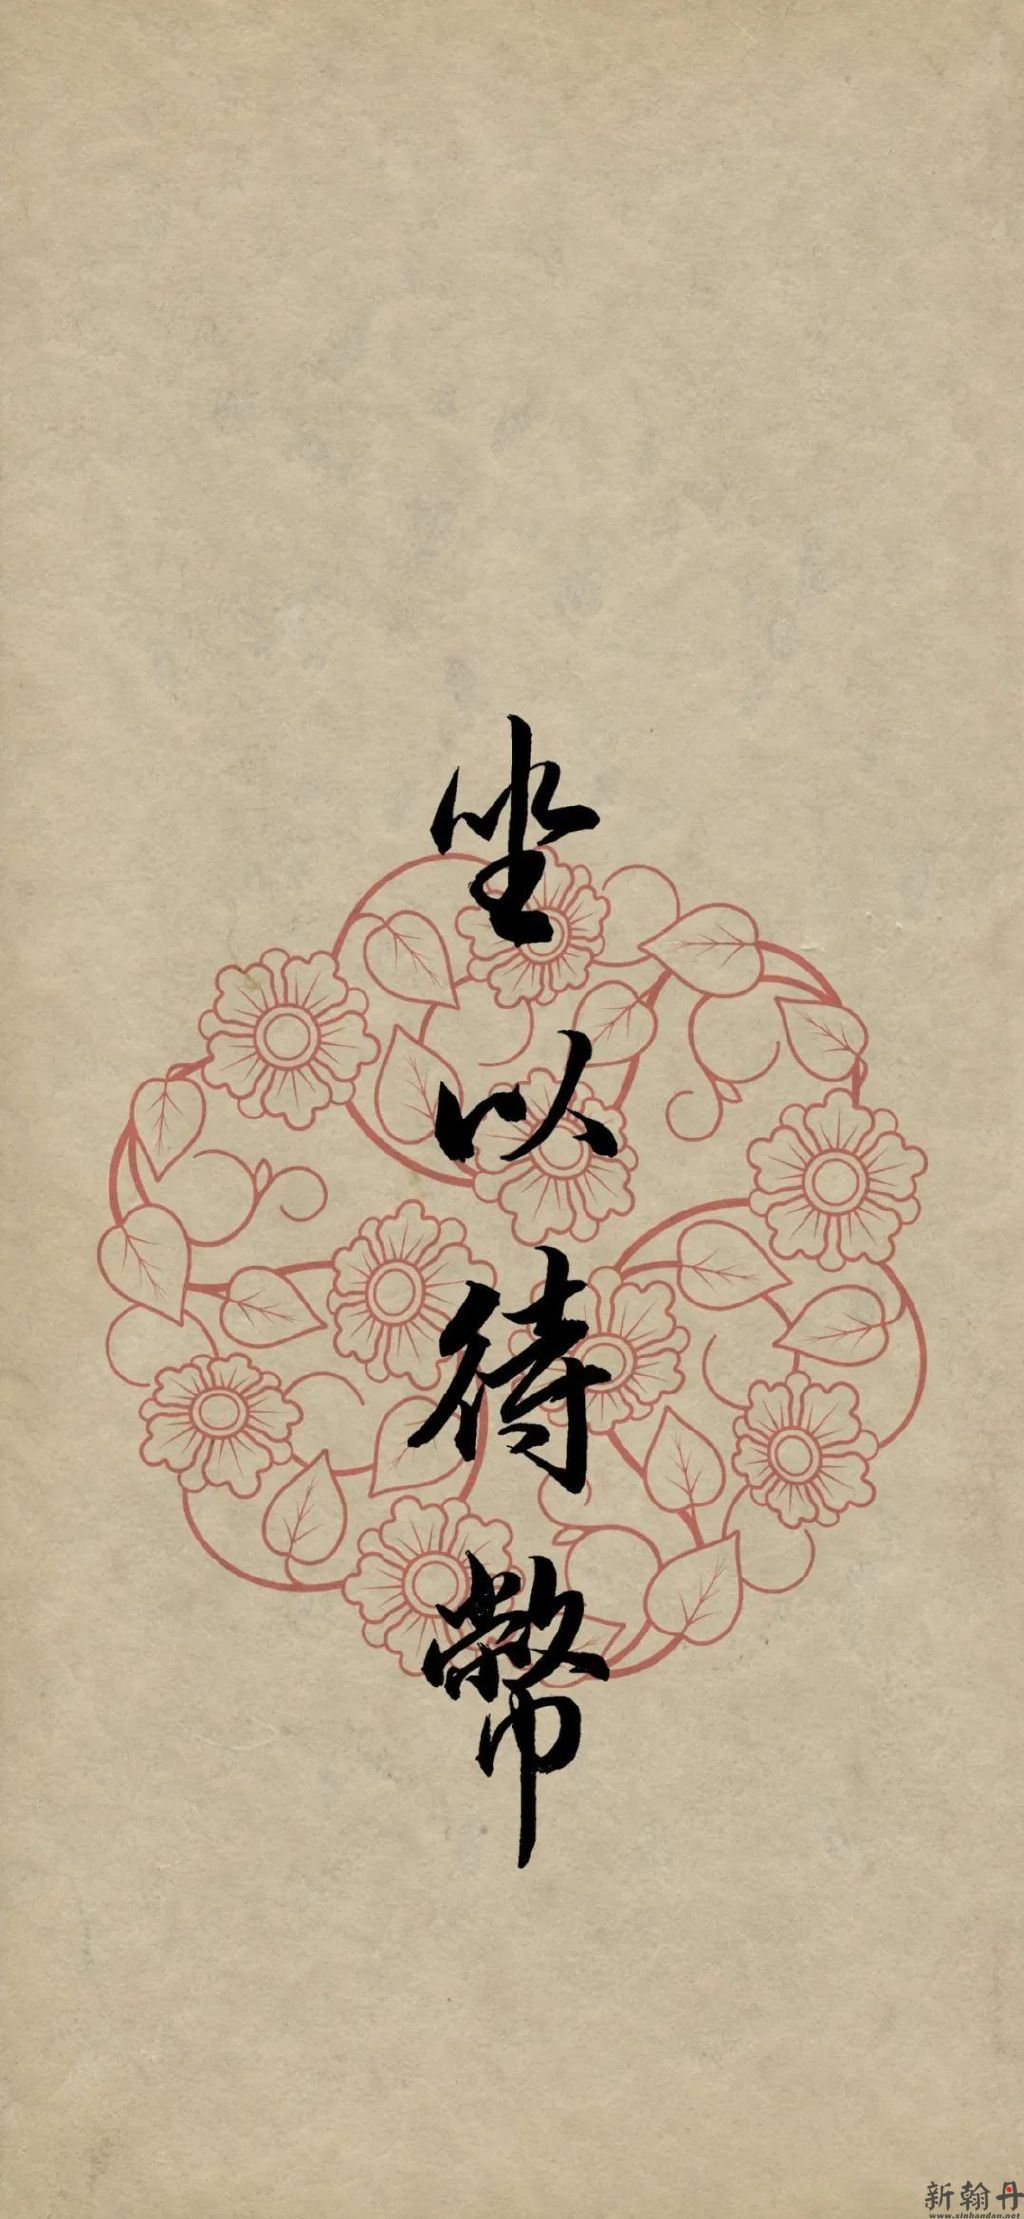 坐以待幣
新翰丹
www.xinhandan.net